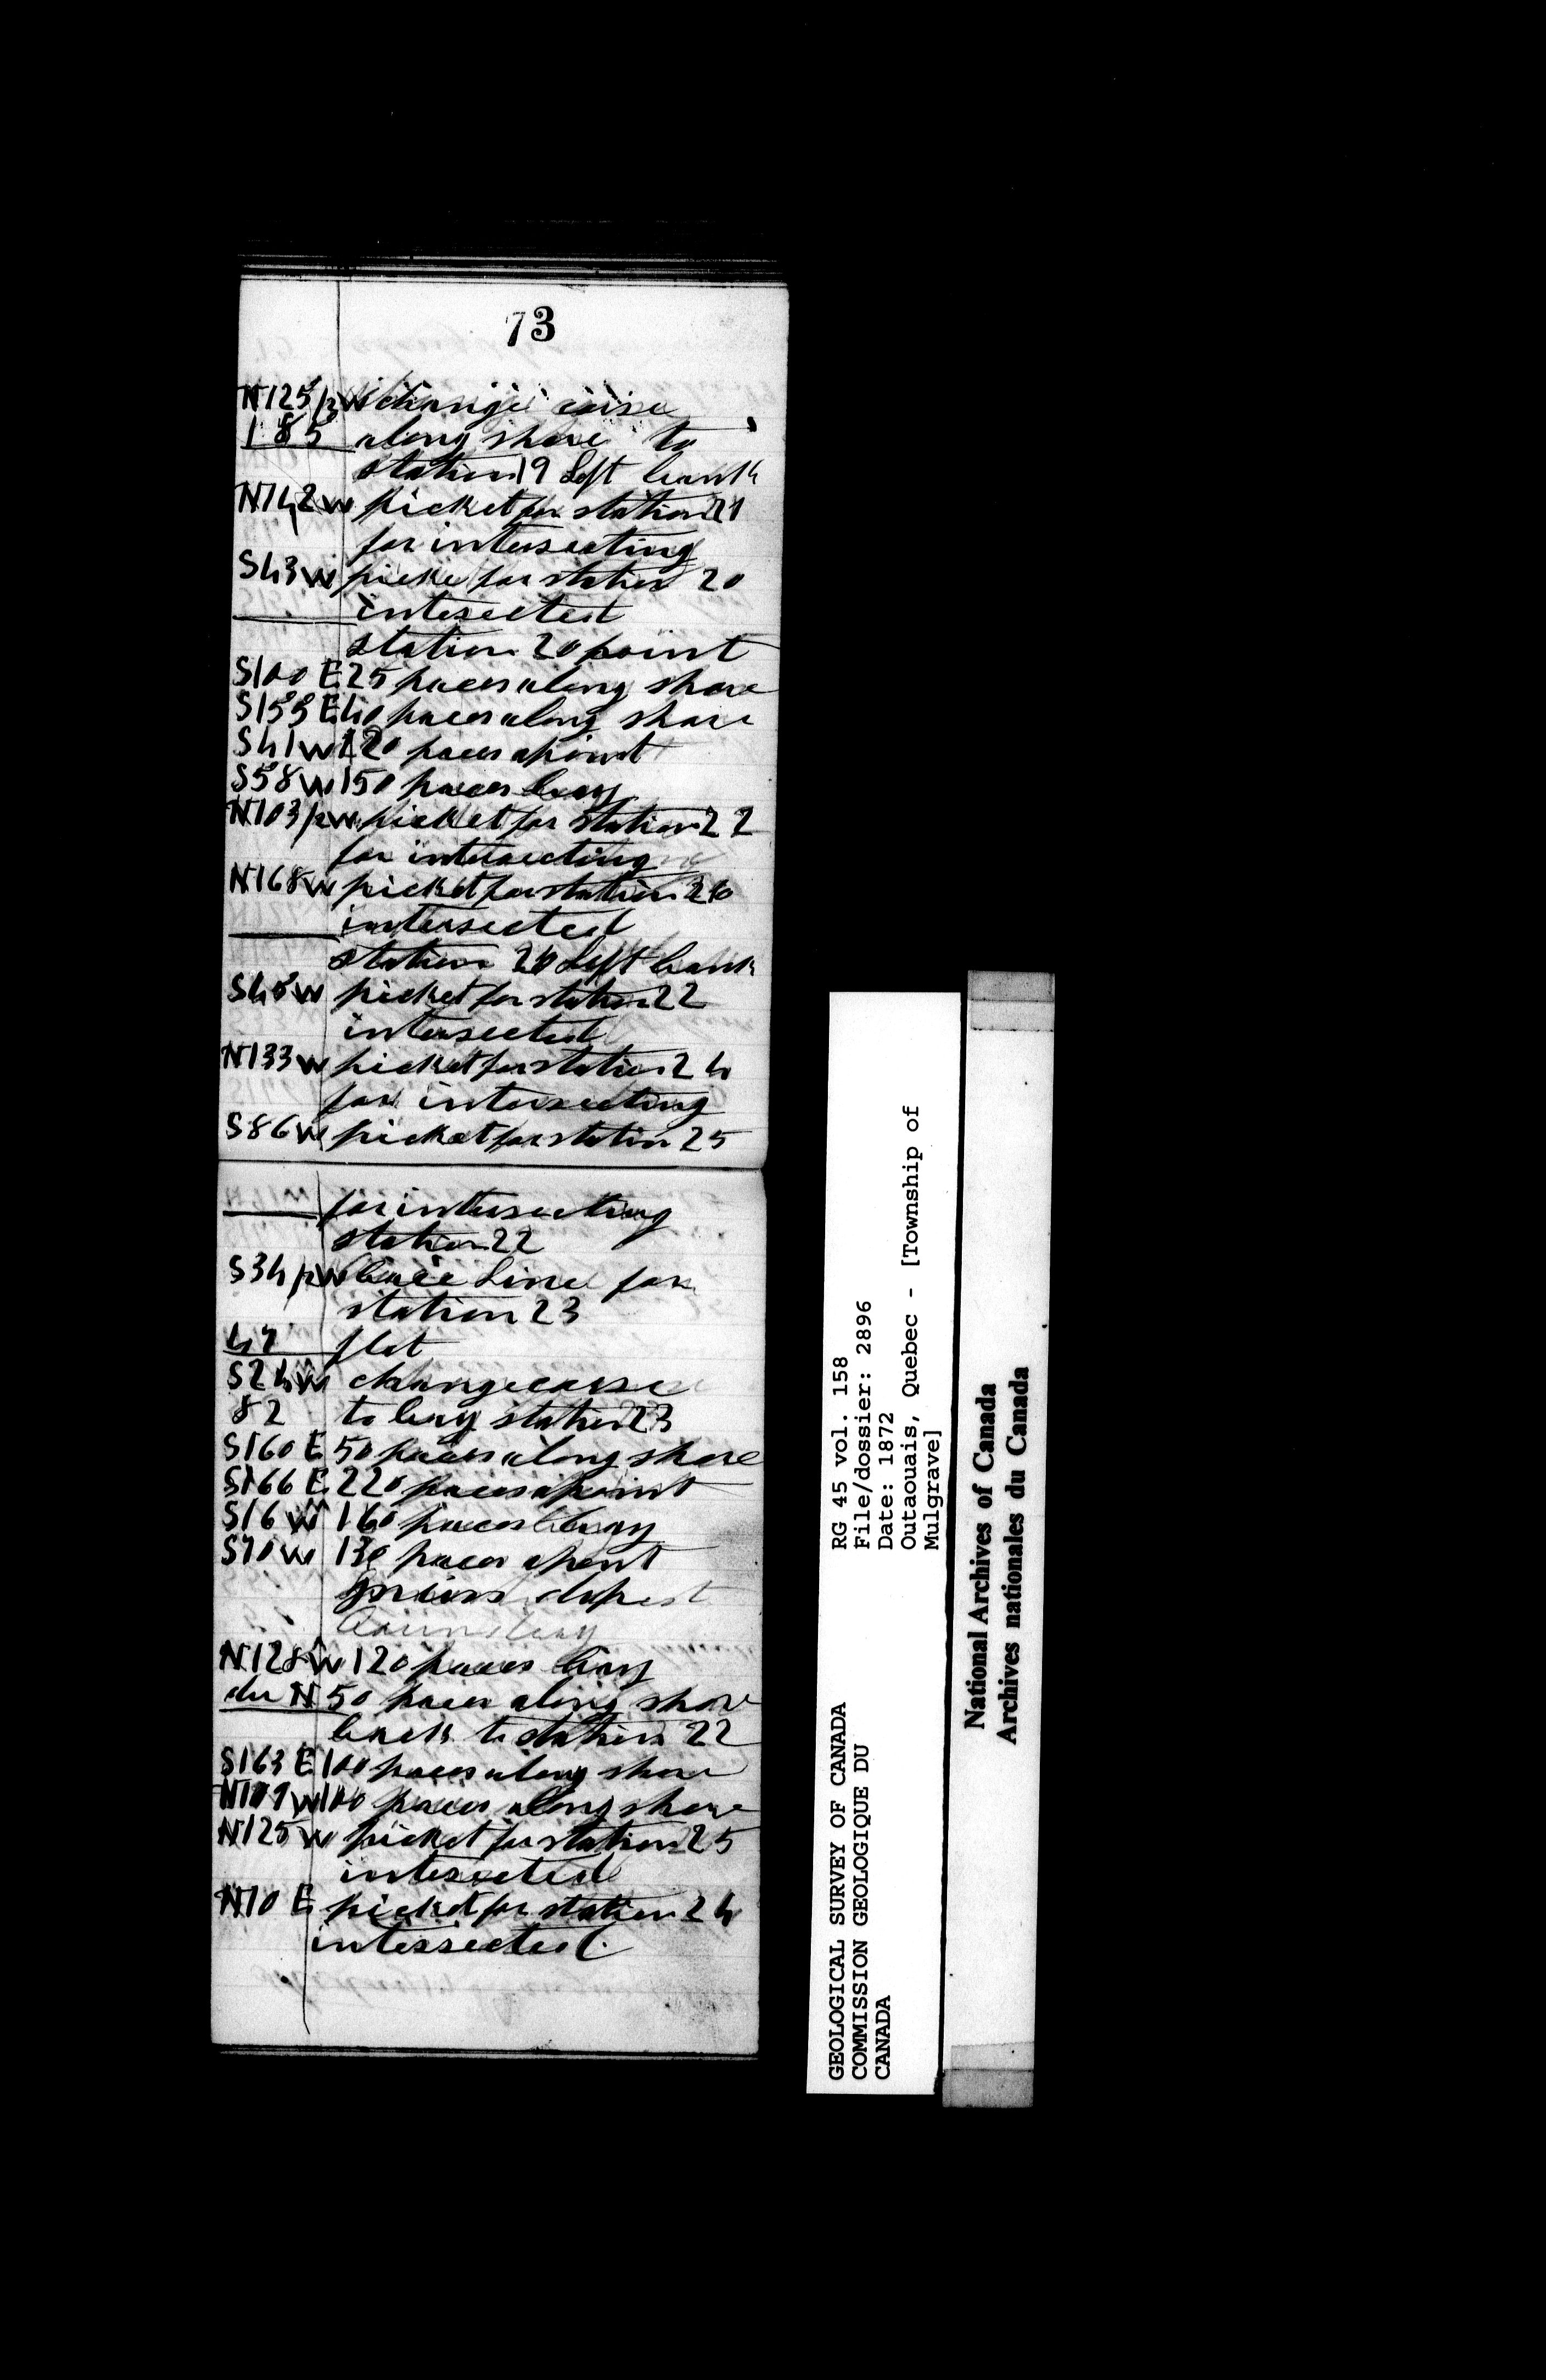 73
N125/2W change corse
185 along shore to
station 19 Left bank
N142W picket for station 21
for intersecting
S43W picke for station 20
intesected
station 20 point
S100 E 25 paces along shore
S155 E 40 paces along shore
S41W 120 paces a point
S58W 150 paces bay
N103/2W picket for station 22
for intersecting
N168W picket for station 20
intersected
station 20 Left bank
S45W picket for station 22
intersected
N133W picket for station 24
for intersecting
S86W picket for station 25
for intersecting
station 22
S34/2W Base Line for
station 23
47 flat
S24W change corse
82 to bay station 23
S160 E 50 paces along shore
S166 E 220 paces a point
S16W 160 paces bay
S70W 130 paces a point
bay
N128W 120 paces bay
du N 50 paces along shore
back to station 22
S163 E 100 paces along shore
N109W 100 paces along shore
N125W picket for station 25
intersected
N10 E picket for station 24
intersected
GEOLOGICAL SURVEY OF CANADA
COMMISSION GEOLOGIQUE DU
CANADA
RG 45 vol. 158
File/dossier: 2896
Date: 1872
Outaouais, Quebec - [Township of
Mulgrave]
National Archives of Canada
Archives nationales du Canada